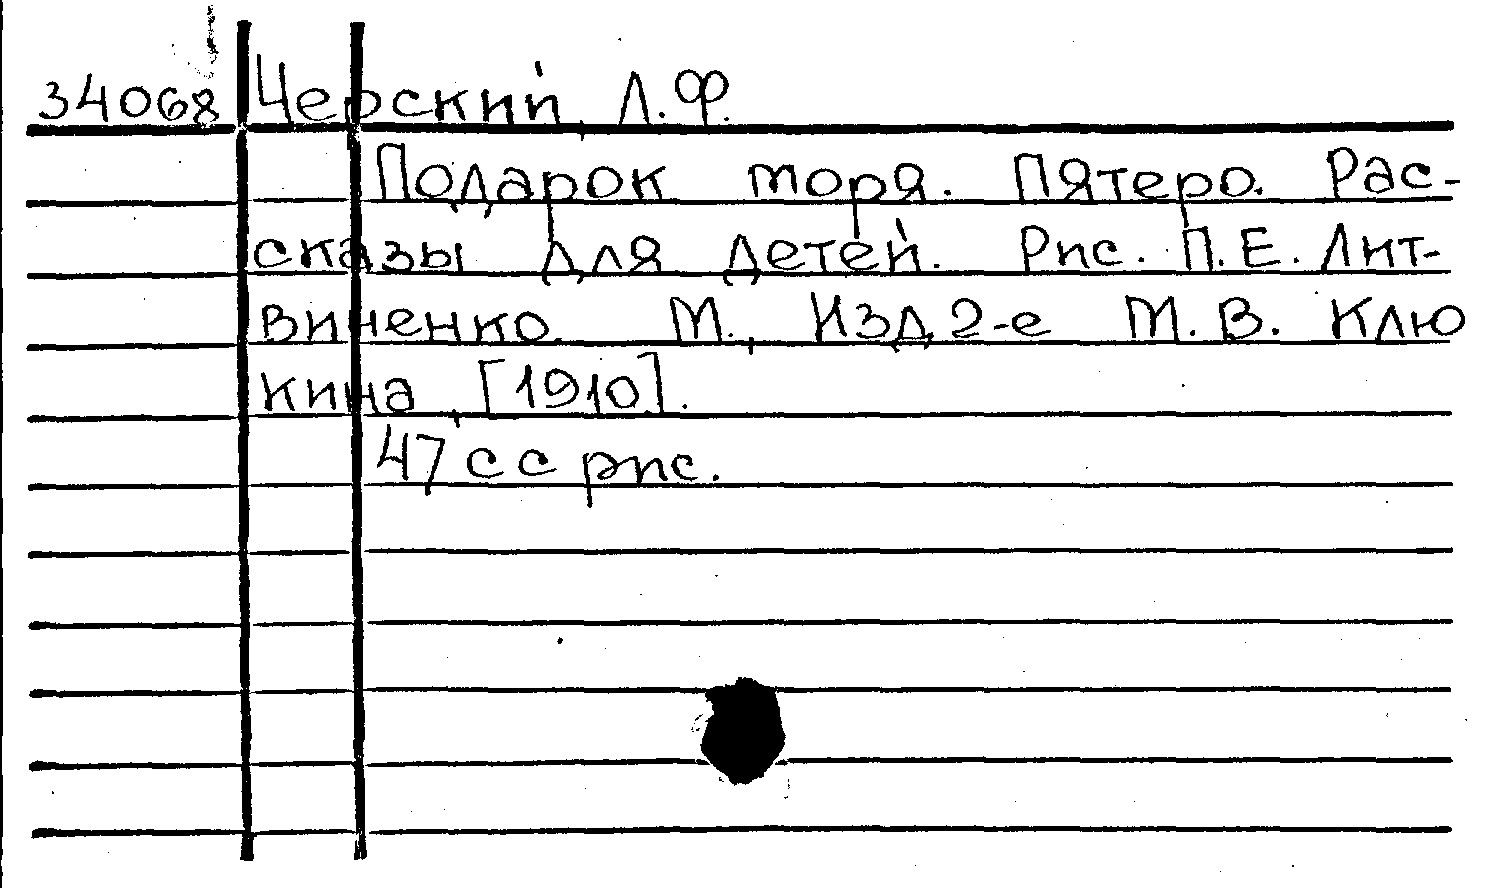 34068 Черский, Л.Ф.
Подарок моря. Пятеро. Рас-
сказы для детей. Рис. П.Е. Лит-
виненко. М., Изд. 2-е М.В. Клю
кина, [1910].
47 с с рис.